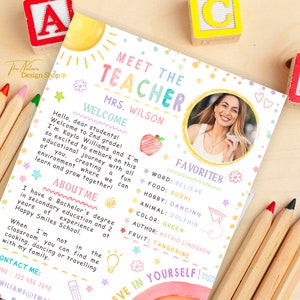 A
C
The Nelson
Design Shop
MEET THE
TEACHER
MRS. WILSON
WELCOME
Hello, dear students!
Welcome to 2nd grade!
I'm Kayla Williams and I'm
so excited to embark on this
educational journey with all
of you, creating a fun
environment where we can
learn and grow together!
ABOUT ME
I have a Bachelor's degree
in secondary education and 2
years of experience at
Happy Smiles School.
When I'm not in the
classroom, you can find me
cooking, dancing or travelling
with my family.
FAVORITES
WORD: BELIEVE
FOOD: SUSHI
HOBBY: DANCING
ANIMAL: DOLPHIN
COLOR: GREEN
AUTHOR: ASTRID LINDGREN
FRUIT: TANGERINE
CONTACT ME:
PHONE: 123 456 7890
IN YOURSELF!